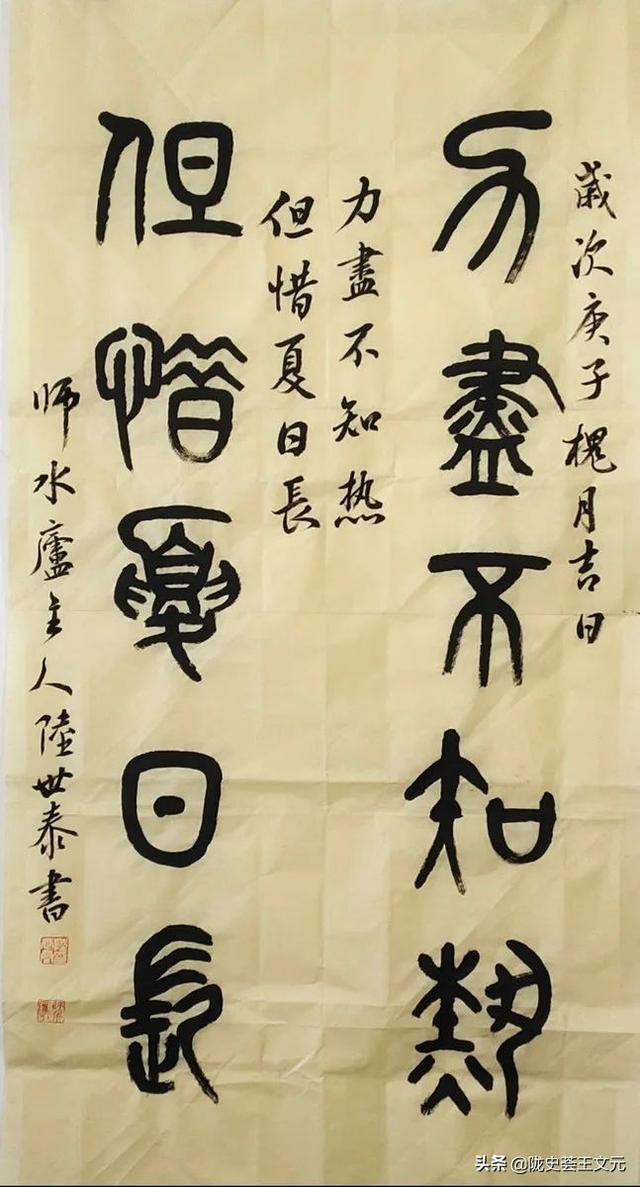 歲次庚子槐月吉日
力盡不知熱
力盡不知热
但惜夏日長
但惜夏日長
师水廬主人陸世泰書
头条 @陇史荟王文元